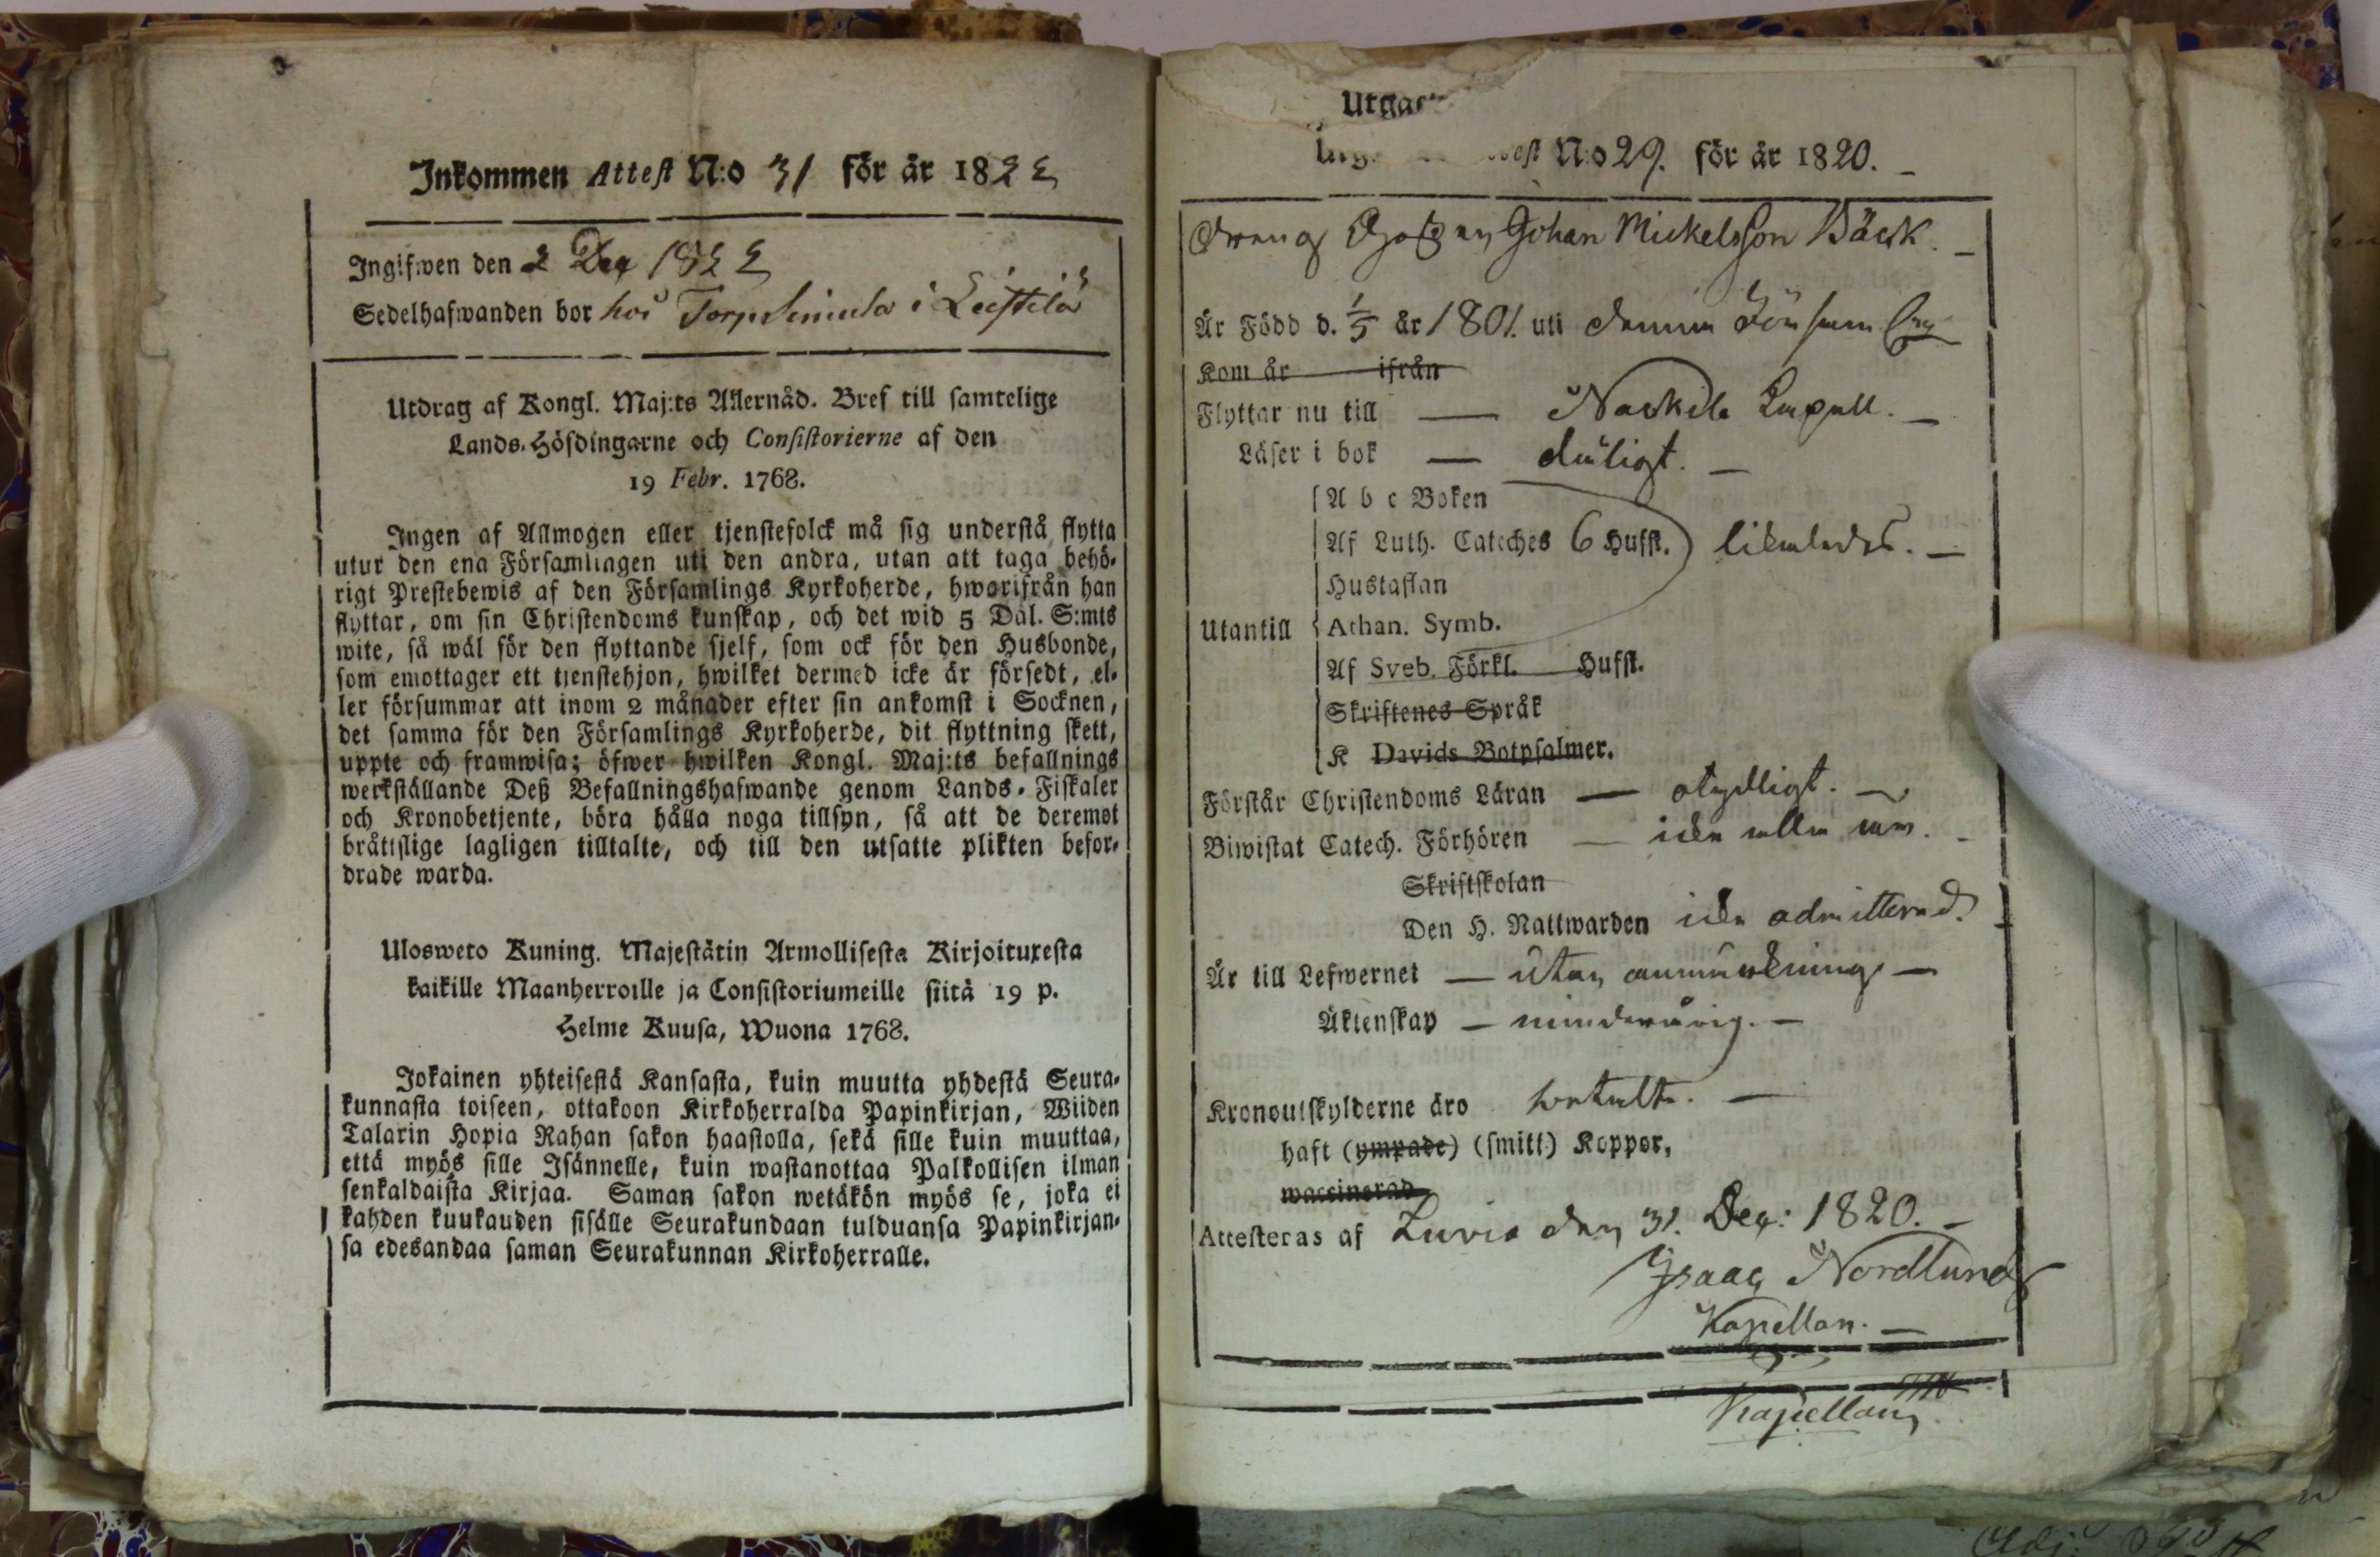 Inkommen Attest N:o 31 för år 1822
Ingifwen den 2 Dec 1822
Sedelhafwanden bor hos Torp i Leistilä
Utdrag af Kongl. Maj:ts Allernåd. Bref till samtelige
Lands-Höfdingarne och Consistorierne af den
19 Febr. 1768.
Ingen af Allmogen eller tjenstefolck må sig understå flytta
utur den ena Församlingen uti den andra, utan att taga behö-
rigt Prestebewis af den Församlings Kyrkoherde, hworifrån han
flyttar, om sin Christendoms kunskap, och det wid 5 Dal. S:mts
wite, så wäl för den flyttande sjelf, som ock för den Husbonde,
som emottager ett tjenstehjon, hwilket dermed icke är försedt, el-
ler försummar att inom 2 månader efter sin ankomst i Socknen,
det samma för den Församlings Kyrkoherde, dit flyttning skett,
uppte och framwisa; öfwer hwilken Kongl. Maj:ts befallnings
werkställande Deß Befallningshafwande genom Lands-Fiskaler
och Kronobetjente, böra hålla noga tillsyn, så att de deremot
bråttslige lagligen tilltalte, och till den utsatte plikten befor-
drade warda.
Ulosweto Kuning. Majestätin Armollisesta Kirjoituxesta
kaikille Maanherroille ja Consistoriumeille siitä 19 p.
Helme Kuusa, Wuona 1768.
Jokainen yhteisestä Kansasta, kuin muutta yhdestä Seura-
kunnasta toiseen, ottakoon Kirkoherralda Papinkirjan, Wiiden
Talarin Hopia Rahan sakon haastolla, sekä sille kuin muuttaa,
että myös sille Isännelle, kuin wastanottaa Palkollisen ilman
senkaldaista Kirjaa. Saman sakon wetäkön myös se, joka ei
kahden kuukauden sisälle Seurakundaan tulduansa Papinkirjan-
sa edesandaa saman Seurakunnan Kirkoherralle.
N:o 29. för år 1820.
Dreng Johan Mickelsson Bäck.
Är Född d. 1/5 år 1801. uti denna Församling
Kom år ifrån
Flyttar nu till Nackila Capell.
Läser i bok dråligt.
A b c Boken
Af Luth. Cateches 6 Hufst. likaledes.
Hustaflan
Utantill Athan. Symb.
Af Sveb. Förkl. Hufst.
Skriftenes Språk
K Davids Botpsalmer.
Förstår Christendoms Läran otydligt.
Biwistat Catech. Förhören
Skriftskolan
Den H. Nattwarden icke admitterad.
Är till Lefwernet utan anmärkning
Äktenskap minderårig.
Kronoutskylderne äro betalte.
haft (ympade) (smitt) Koppor,
waccinerad
Attesteras af Luvia den 31. Dec: 1820.
Isaac Nordlund
Kapellan.
Kapellan